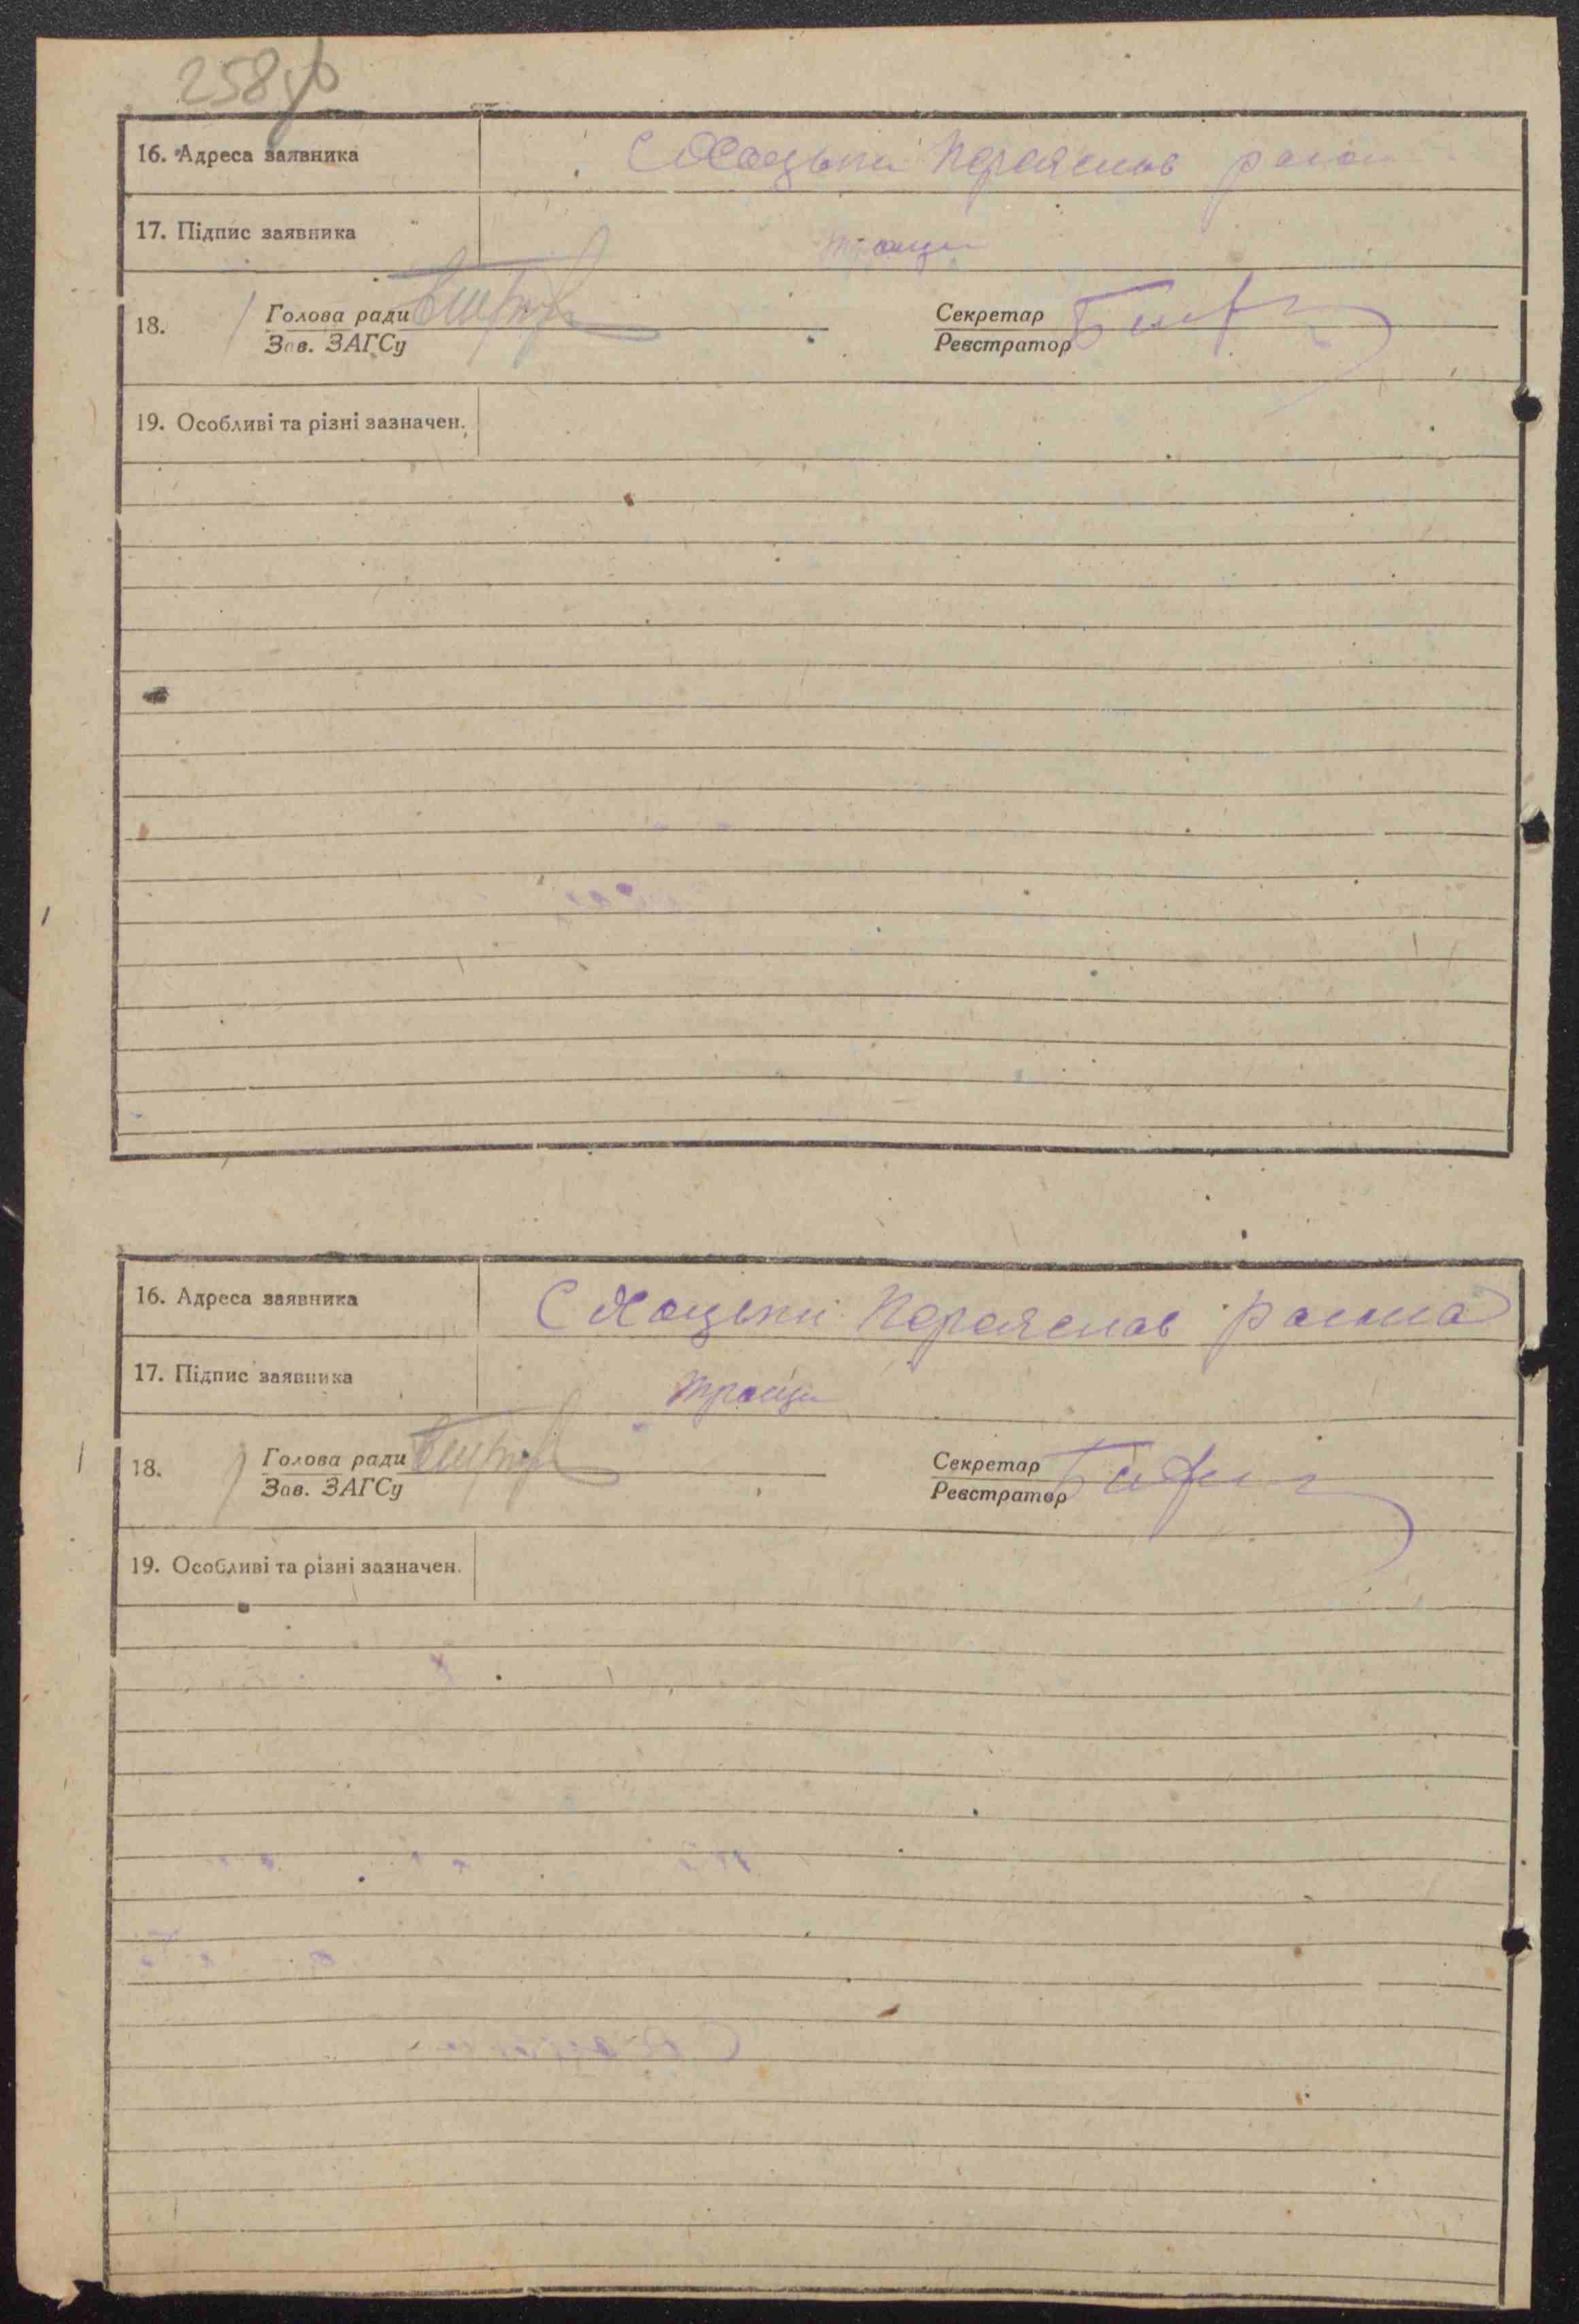 258
16. Адреса заявника С Хоцьки Переяслав район
17. Підпис заявника
18. Голова ради Секретар
Зав. ЗАГСу Реєстратор
19. Особливі та різні зазначен.
16. Адреса заявника С Хоцьки Переяслав района
17. Підпис заявника
18. Голова ради Секретар
Зав. ЗАГСу Реєстратор
19. Особливі та різні зазначен.